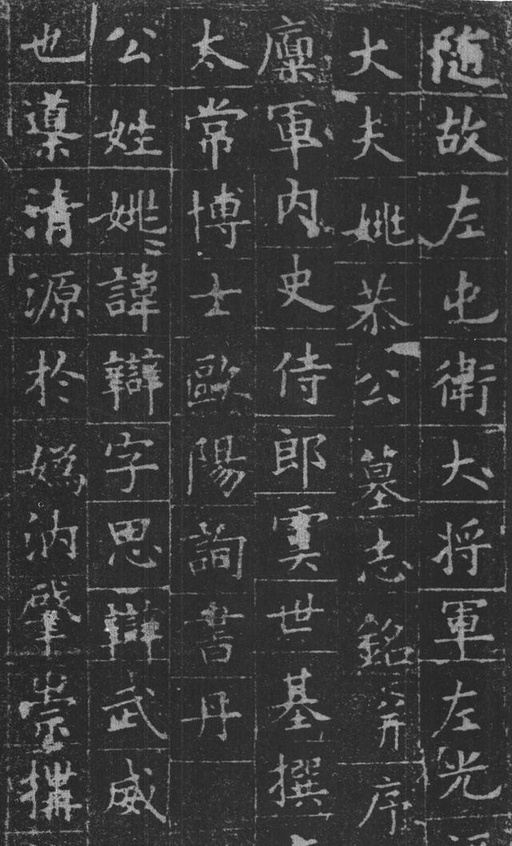 隨故左屯衛大將軍左光
大夫姚恭公墓志銘并序
廩軍内史侍郎虞世基撰
太常博士歐陽詢書丹
公姓姚諱辯字思辯武威
也導清源於嬀汭肇崇搆